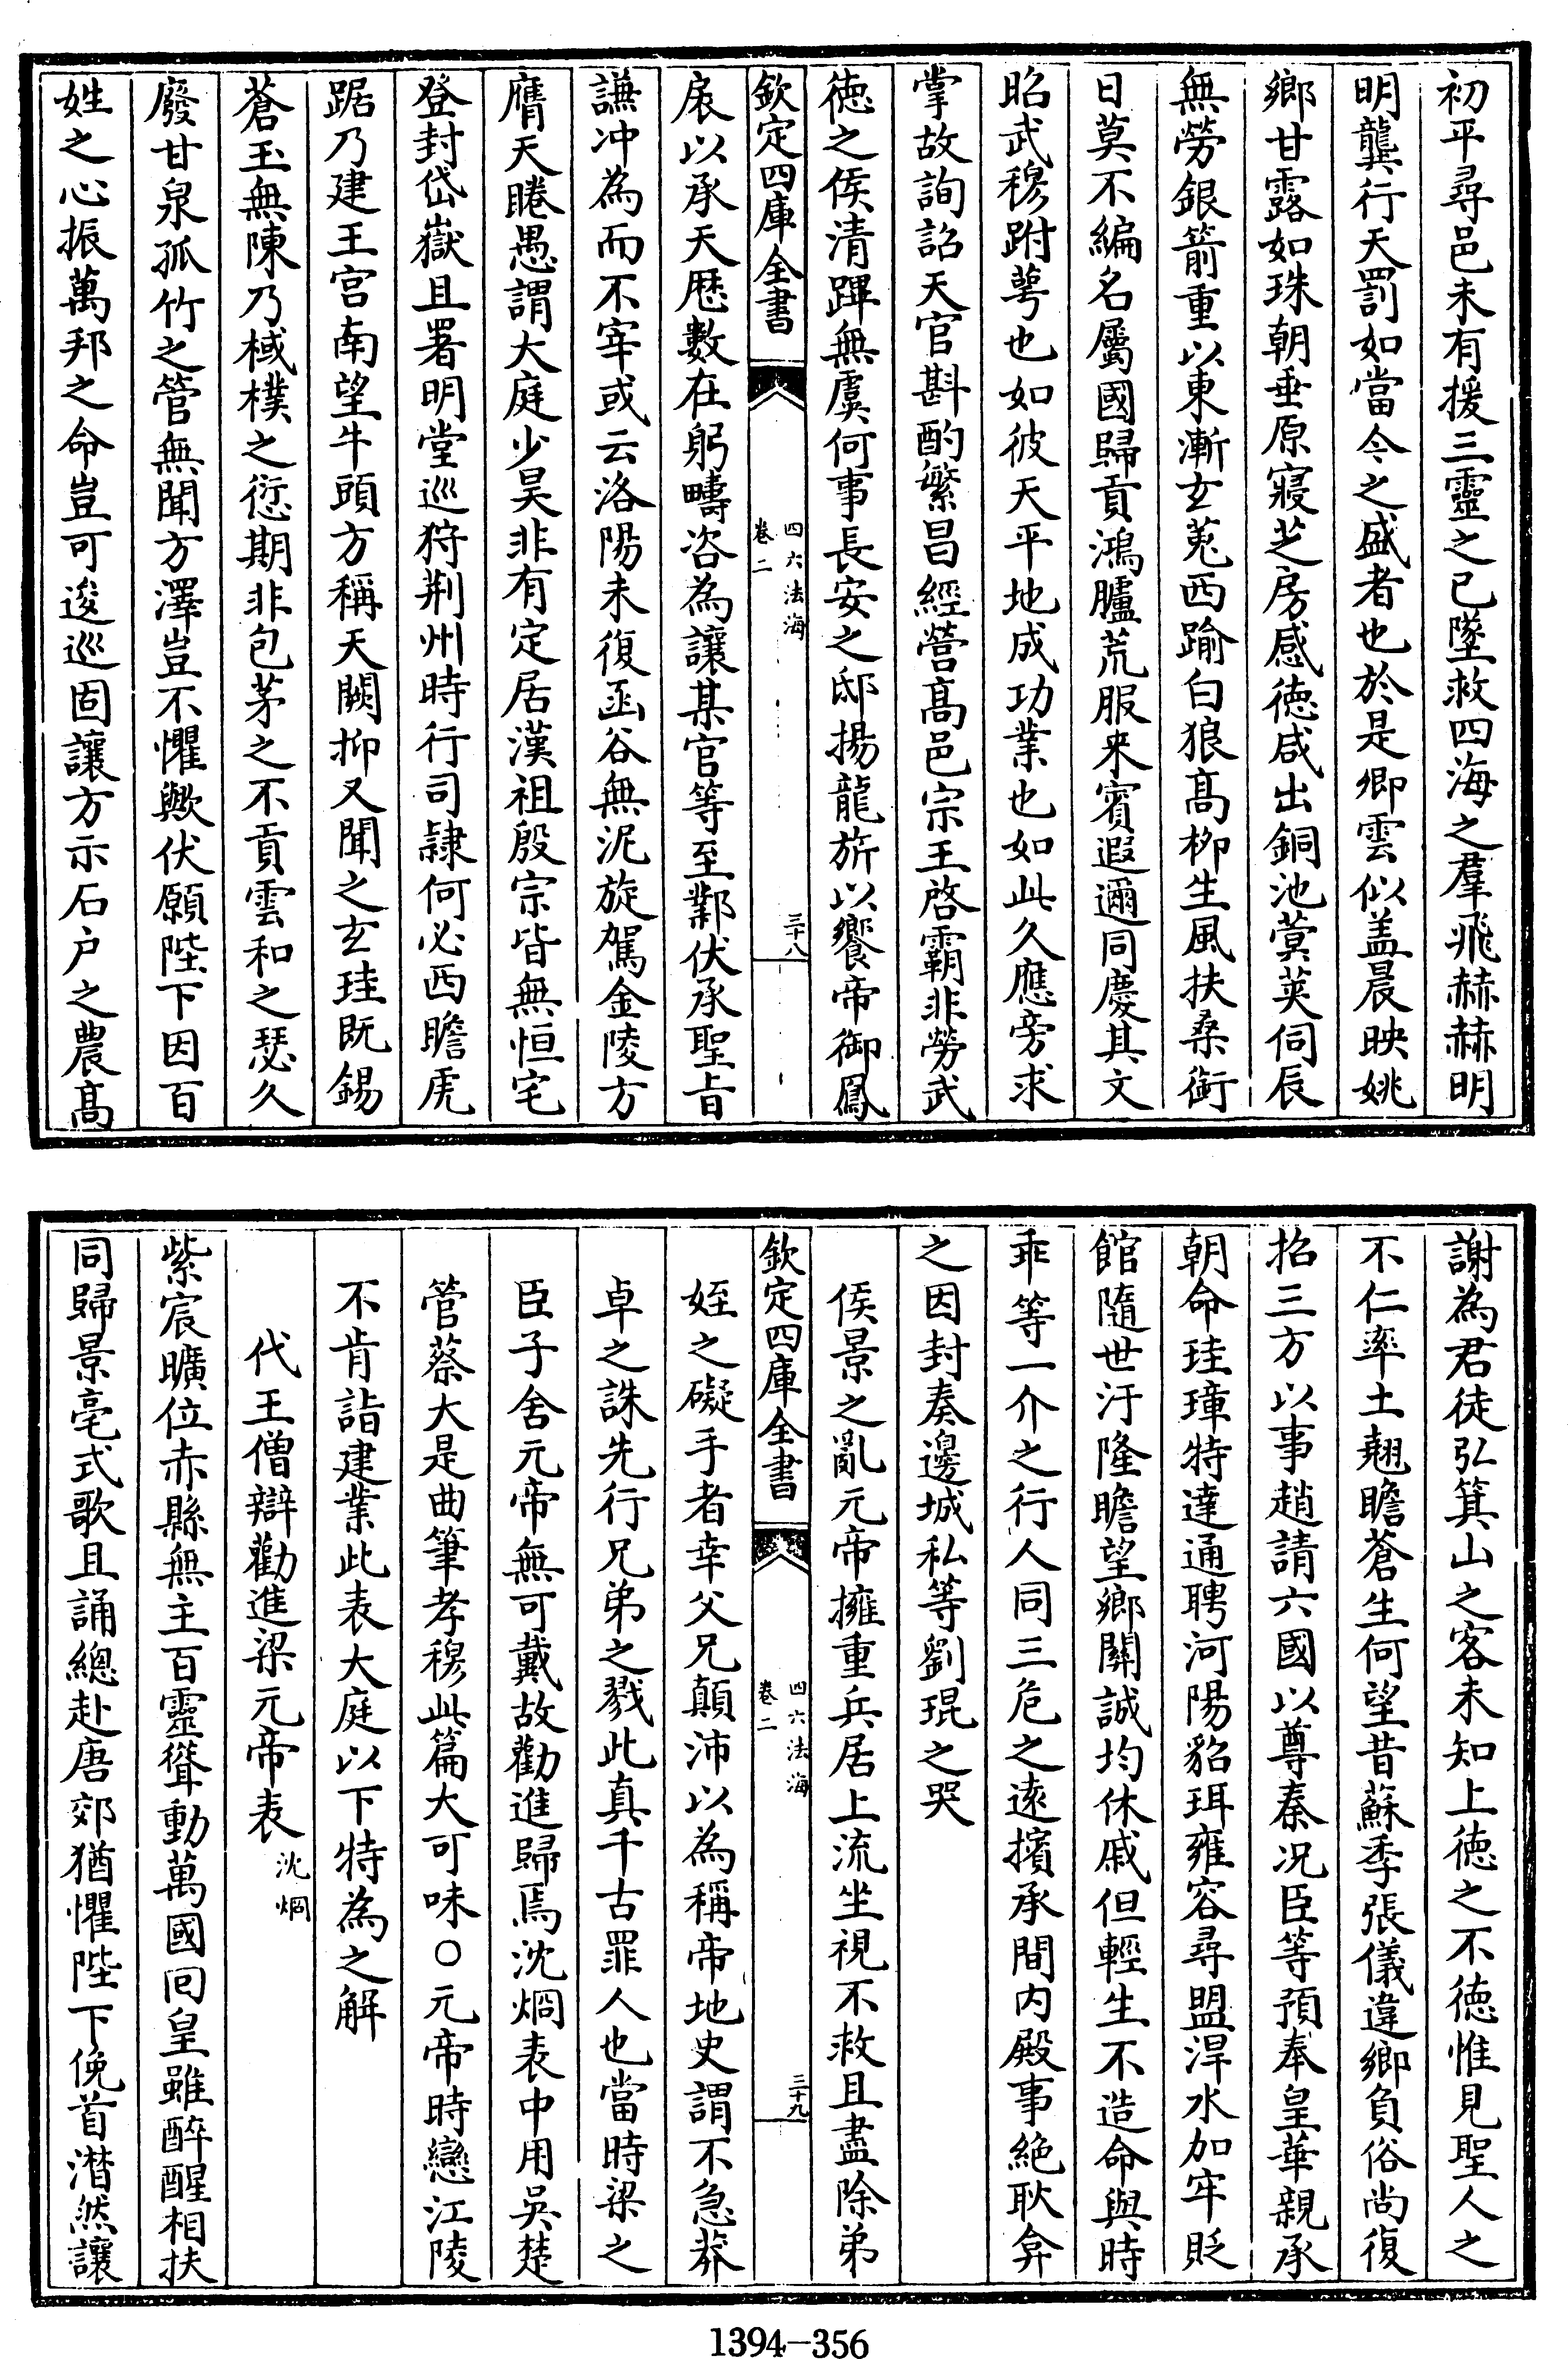 初平尋邑未有援三靈之已墜救四海之羣飛赫赫明
明龔行天罰如當今之盛者也於是卿雲似盖晨映姚
鄉甘露如珠朝垂原寢芝房感徳咸出銅池蓂莢伺辰
無勞銀箭重以東漸玄菟西踰白狼髙栁生風扶桑銜
日莫不編名屬國歸貢鴻臚荒服来賓遐邇同慶其文
昭武穆跗蕚也如彼天平地成功業也如此久應旁求
掌故詢詔天官斟酌繁昌經營髙邑宗王啓霸非勞武
徳之侯清蹕無虞何事長安之邸揚龍旂以饗帝御鳳
欽定四庫全書
四六法海
卷二
三十八
扆以承天厯數在躬疇咨為讓某官等至鄴伏承聖㫖
謙冲為而不宰或云洛陽未復函谷無泥旋駕金陵方
膺天睠愚謂大庭少昊非有定居漢祖殷宗皆無恒宅
登封岱嶽且署明堂巡狩荆州時行司隷何必西瞻虎
踞乃建王宫南望牛頭方稱天闕抑又聞之玄珪既錫
蒼玉無陳乃棫樸之愆期非包茅之不貢雲和之瑟久
廢甘泉孤竹之管無聞方澤豈不懼歟伏願陛下因百
姓之心振萬邦之命豈可逡巡固讓方示石户之農髙
謝為君徒弘箕山之客未知上徳之不徳惟見聖人之
不仁率土翹瞻蒼生何望昔蘇季張儀違鄉負俗尚復
招三方以事趙請六國以尊秦况臣等預奉皇華親承
朝命珪璋特達通聘河陽貂珥雍容尋盟漳水加牢貶
館隨世汙隆瞻望鄉關誠均休戚但輕生不造命與時
乖等一介之行人同三危之逺擯承間内殿事絶耿弇
之因封奏邊城私等劉琨之哭
侯景之亂元帝擁重兵居上流坐視不救且盡除弟
欽定四庫全書
四六法海
卷二
三十九
姪之礙手者幸父兄顛沛以為稱帝地史謂不急莽
卓之誅先行兄弟之戮此真千古罪人也當時梁之
臣子舍元帝無可戴故勸進歸焉沈烱表中用吳楚
管蔡大是曲筆孝穆此篇大可味○元帝時戀江陵
不肯詣建業此表大庭以下特為之解
代王僧辯勸進梁元帝表　沈烱
紫宸曠位赤縣無主百靈聳動萬國囘皇雖醉醒相扶
同歸景亳式歌且誦總赴唐郊猶懼陛下俛首潸然讓
1394-356